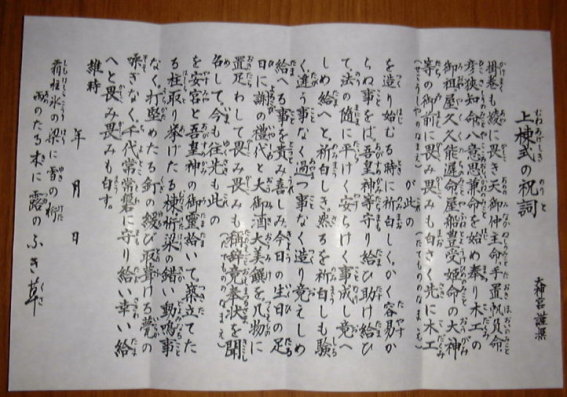 上棟式の祝詞
大神宮謹撰
掛巻も綾に畏き天御中主命手置帆負命
彦狭知命八意思兼命を始め奉、木工の
御祖屋久久能遅命屋船豊受姫命の大神
等の御前に畏み畏みも白さく先に木工
が此の
を造り始むる時に祈白しかく容易か
らぬ事をば吾皇神等守り給ひ助け給ひ
て法の随に平けく安らけく事成し竟へ
しめ給へと祈白しき然るを祈白しも験
く違う事なく過つ事なく造り竟えしめ
給へる事を貴み喜しみ今日の生日の足
日に謝の禮代と大御酒大美饌を几物に
置足わして畏み畏みも称辞竟奉状を聞
名して、今も往先も此の
を安宮と吾皇神の御霊給いて築立てた
る柱取り挙けたる棟桁梁の錯、動鳴事
なく打堅めたる釘の緩び取葺ける甍の
噪ぎなく千代常磐に守り給へ幸い給
へと畏み畏みも白す。
維時
年 月 日
霜柱氷の梁に雪の桁
雨のたる木に露のふき草